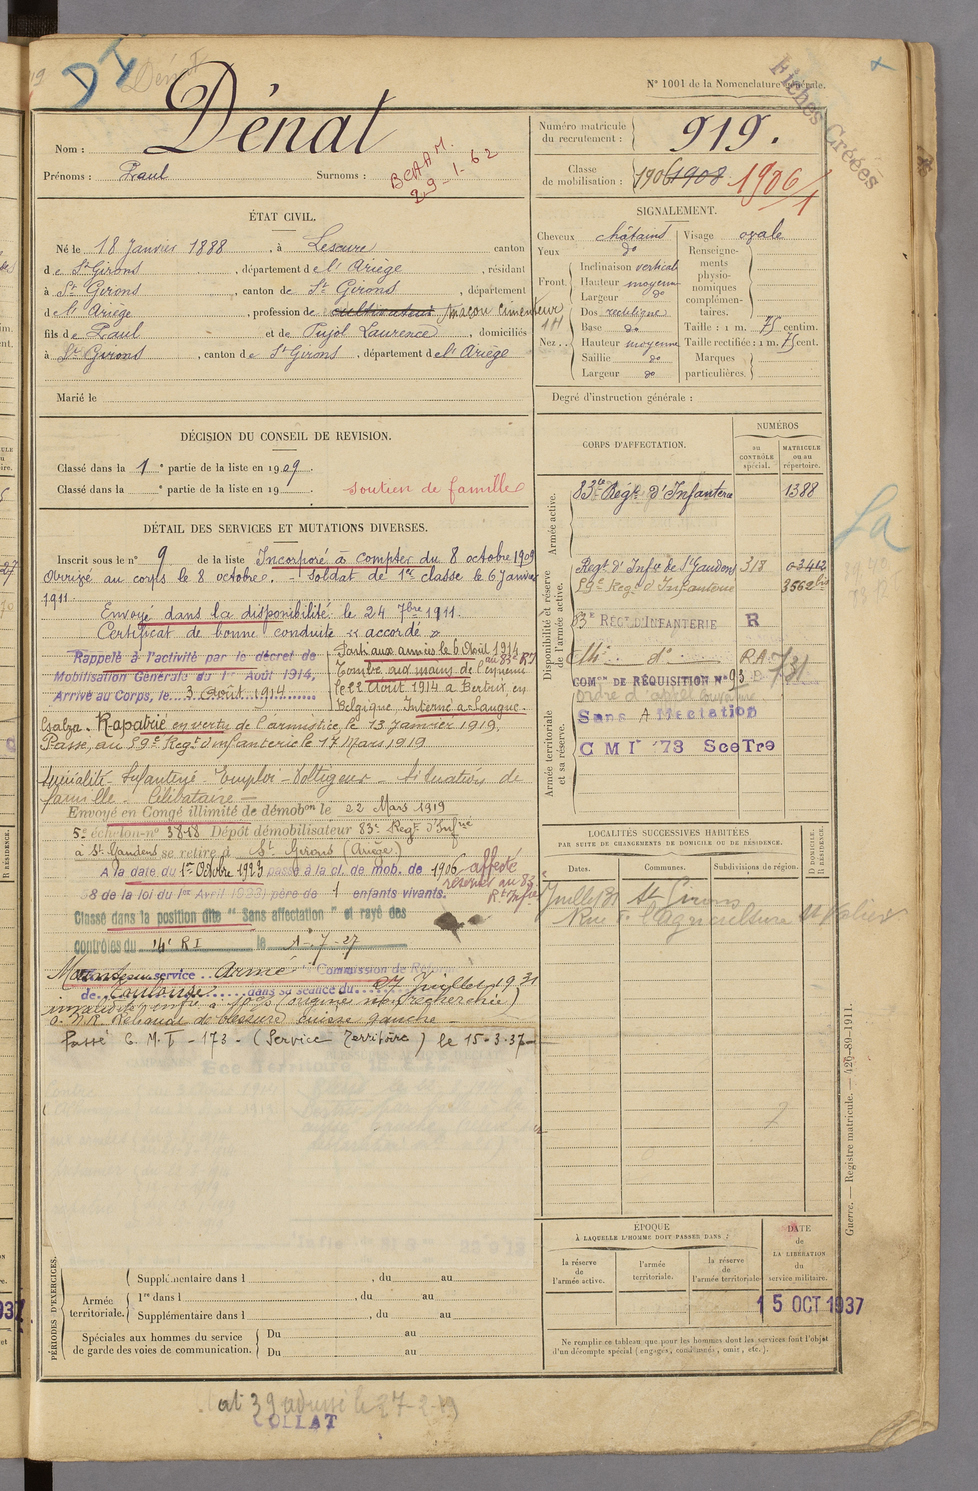 N° 1001 de la Nomenclature générale.
Fiches Créées
Nom : Dénat
Prénoms : Paul Surnoms :
BCAAM.
29-1-62
Numéro matricule du recrutement : 919.
Classe de mobilisation : 1906 1908 1906/1
ÉTAT CIVIL.
Né le 18 Janvier 1888, à Lescure canton
de St Girons, département de l'Ariège, résidant
à St Girons, canton de St Girons, département
de l'Ariège, profession de cultivateur Maçon cimenteur
fils de Paul et de Pujol Laurence domiciliés
à St Girons, canton de St Girons, département de l'Ariège
Marié le
SIGNALEMENT.
Cheveux châtains
Yeux do
Front Inclinaison vertical
Hauteur moyenne
Largeur do
Nez Dos rectiligne
Base do
Hauteur moyenne
Saillie do
Largeur do
Visage ovale
Renseignements physionomiques complémentaires.
Taille : 1 m. 75 centim.
Taille rectifiée : 1 m. 75 cent.
Marques particulières.
Degré d'instruction générale :
DÉCISION DU CONSEIL DE REVISION.
Classé dans la 1e partie de la liste en 1909.
Classé dans la e partie de la liste en 19
soutien de famille
DÉTAIL DES SERVICES ET MUTATIONS DIVERSES.
Inscrit sous le n° 9 de la liste Incorporé à compter du 8 octobre 1909
Arrivé au corps le 8 octobre. - Soldat de 1re classe le 6 Janvier
1911.
Envoyé dans la disponibilité le 24 7bre 1911.
Certificat de bonne conduite « accordé »
Rappelé à l'activité par le décret de
Mobilisation Générale du 1er Août 1914,
Arrivé au Corps, le 3 Août 1914
Parti aux armées le 6 Août 1914
au 83e RI
Tombé aux mains de l'ennemi
le 22 Août 1914 à Bertrix en
Belgique, Interné à Langue-
salza. Rapatrié en vertu de l'armistice le 13 Janvier 1919.
Passé au 59e Regt d'infanterie le 17 Mars 1919
Spécialité - Infanterie - Emploi - Voltigeur - Situation de
famille - Célibataire -
Envoyé en Congé illimité de démobon le 22 Mars 1919
5e échelon-no 3818 Dépôt démobilisateur 83e Regt d'Infrie
à St Gaudens se retire à St Girons (Ariège)
A la date du 1er Octobre 1923 passé à la cl. de mob. de 1906 affecté
réserves au 83
Rt Infrie
58 de la loi du 1er Avril 1923) père de 1 enfants vivants.
Classé dans la position dite "Sans affectation" et rayé des
contrôles du 14e RI le 1-7-27
Maintenu service Armé Commission de Réforme
de Toulouse dans sa séance du 27 Juillet 1931
invalidité infre à 10% (origine non recherchée)
Reliquat de blessure cuisse gauche -
Passé C. M. I - 173 - (Service Territoire) le 15-3-37-
CORPS D'AFFECTATION.
NUMÉROS
au CONTRÔLE spécial.
MATRICULE ou au répertoire.
Armée active.
83e Régt d'Infanterie 1388
Disponibilité et réserve de l'armée active.
Regt d'Infrie de St Gaudens 318 03412
59e Regt d'Infanterie 3562 bis
83e REGT D'INFANTERIE R
Armée territoriale et sa réserve.
COMon DE RÉQUISITION N° 93
Sans Affectation
CMI 173 SceTre
LOCALITÉS SUCCESSIVES HABITÉES
PAR SUITE DE CHANGEMENTS DE DOMICILE OU DE RÉSIDENCE.
Dates. Communes. Subdivisions de région. D DOMICILE. R RÉSIDENCE.
Juillet 31 St Girons
Rue de l'Agriculture St Valier
ÉPOQUE
À LAQUELLE L'HOMME DOIT PASSER DANS :
la réserve de l'armée active.
l'armée territoriale.
la réserve de l'armée territoriale
DATE de LA LIBÉRATION du service militaire.
15 OCT 1937
Ne remplir ce tableau que pour les hommes dont les services font l'objet
d'un décompte spécial (engagés, condamnés, omis, etc.).
PÉRIODES D'EXERCICES.
Armée territoriale.
Supplémentaire dans l , du au
1re dans l , du au
Supplémentaire dans l , du au
Spéciales aux hommes du service
de garde des voies de communication.
Du au
Du au
Guerre. — Registre matricule. — 426-89-1911.
COLLAT